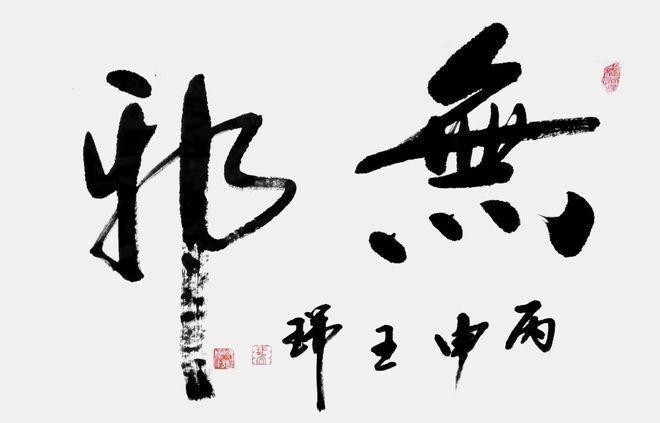 無邪
丙申王瑞